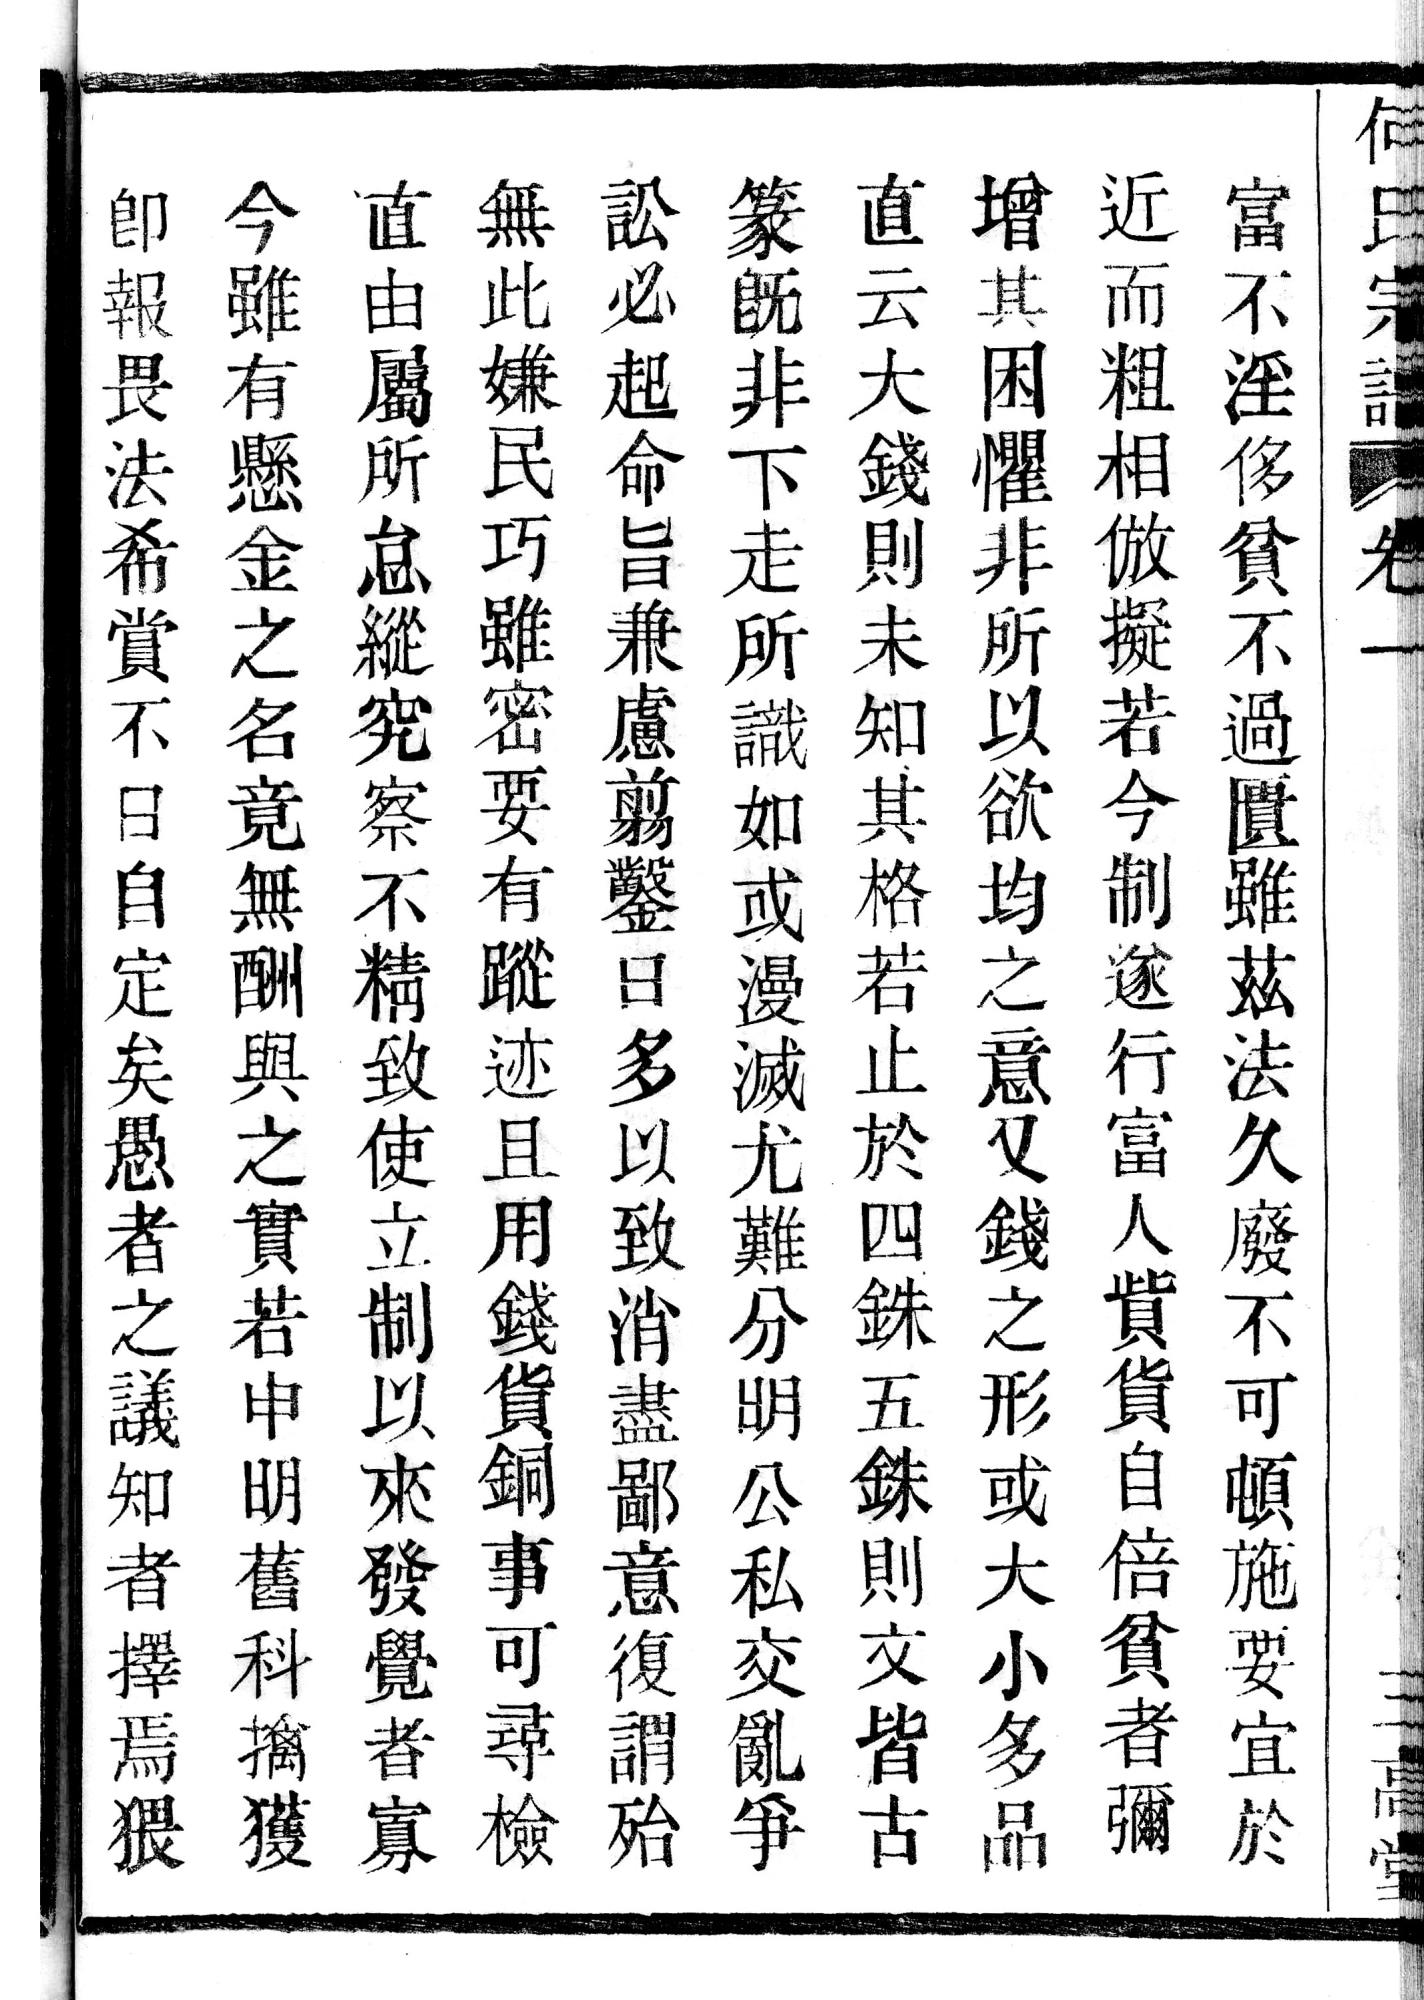 何氏宗譜 卷一 三高堂
富不淫侈貧不過匱雖茲法久廢不可頓施要宜於
近而粗相倣擬若今制遂行富人貲貨自倍貧者彌
增其困懼非所以欲均之意又錢之形或大小多品
直云大錢則未知其格若止於四銖五銖則文皆古
篆既非下走所識如或漫滅尤難分明公私交亂爭
訟必起命旨兼慮剪鑿日多以致消盡鄙意復謂殆
無此嫌民巧雖密要有蹤迹且用錢貨銅事可尋檢
直由屬所怠縱究察不精致使立制以來發覺者寡
今雖有懸金之名竟無酬與之實若申明舊科擒獲
即報畏法希賞不日自定矣愚者之議知者擇焉猥